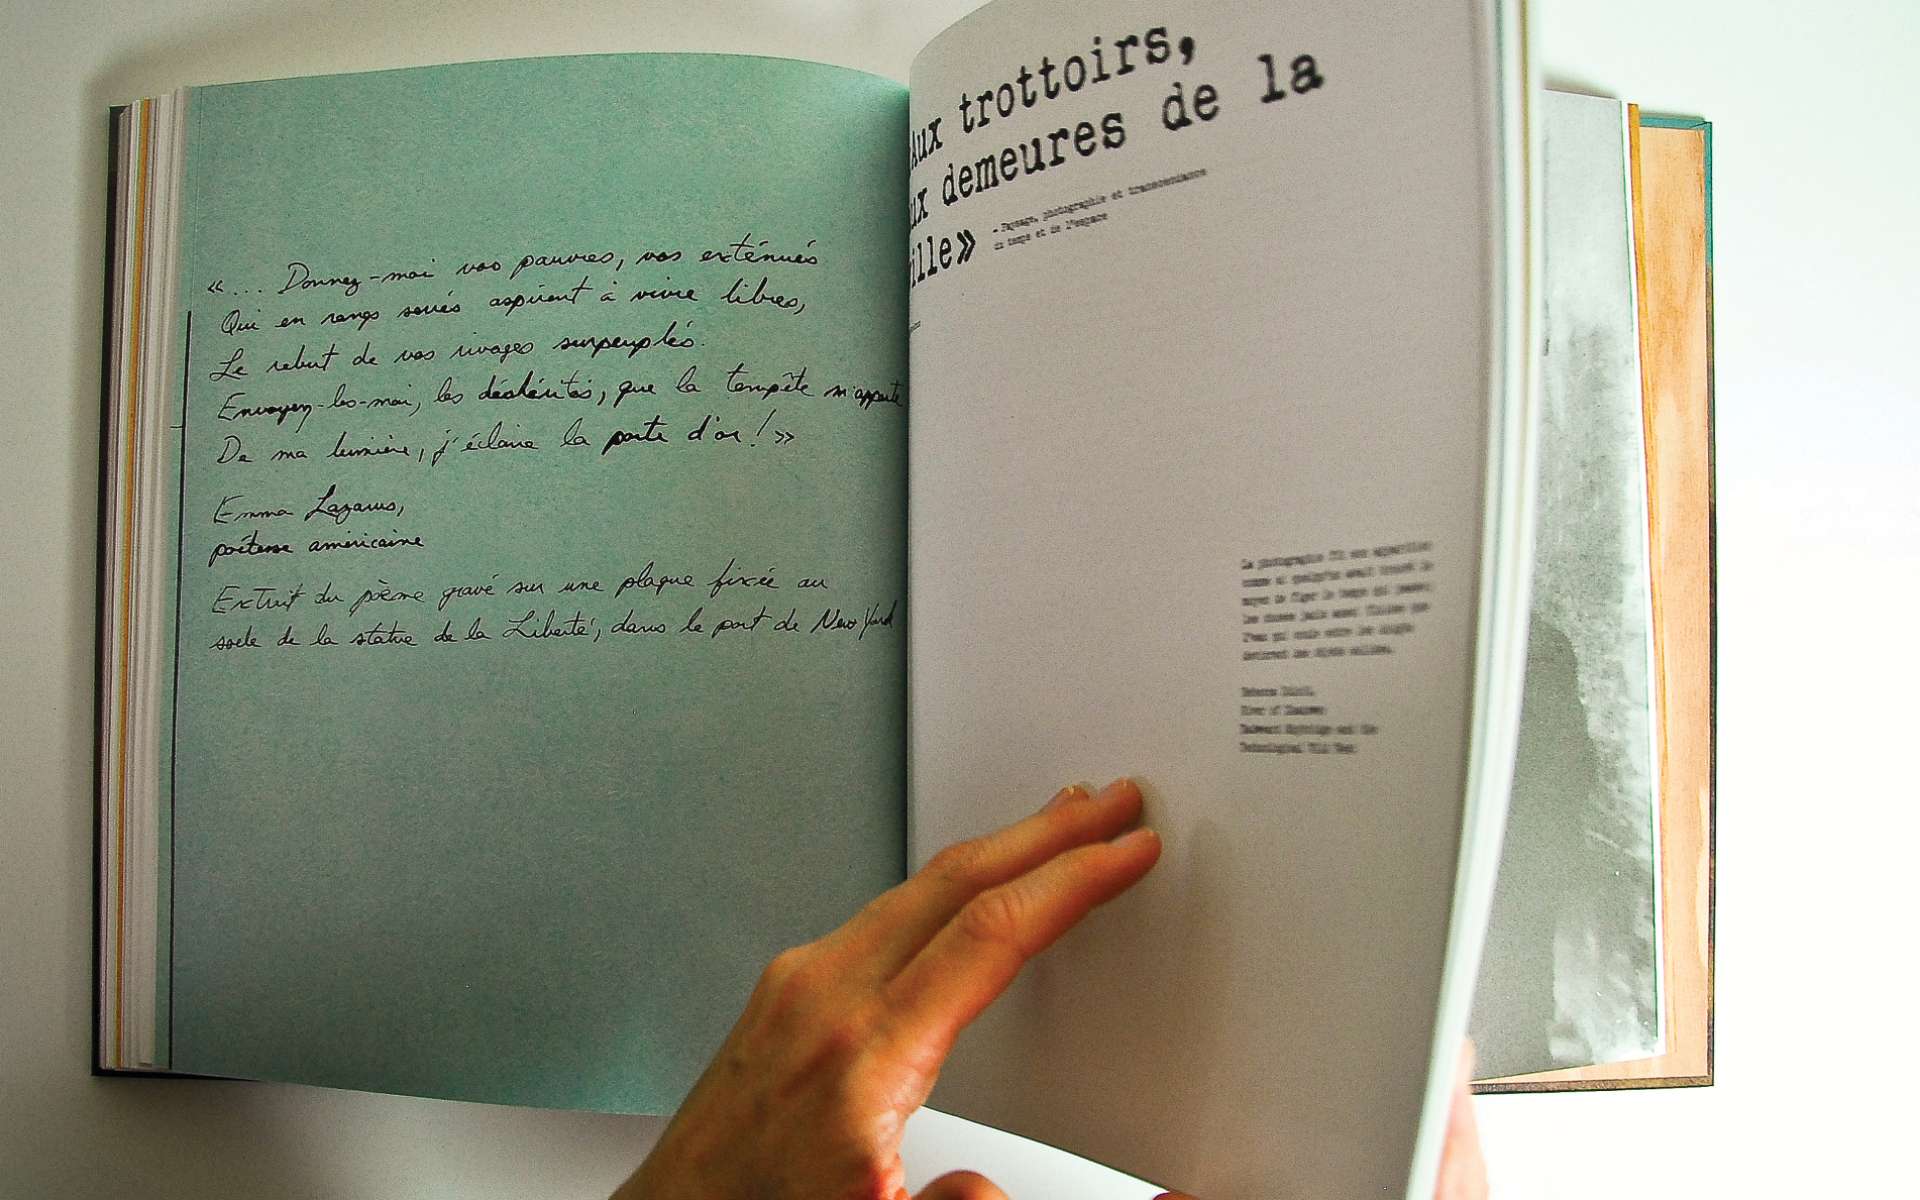 «... Donnez-moi vos pauvres, vos exténués
Qui en rangs serrés aspirent à vivre libres,
Le rebut de vos rivages surpeuplés.
Envoyez-les-moi, les déshérités, que la tempête m'apporte
De ma lumière, j'éclaire la porte d'or!»
Emma Lazarus,
poétesse américaine
Extrait du poème gravé sur une plaque fixée au
socle de la statue de la Liberté, dans le port de New York
Aux trottoirs,
ux demeures de la
ille»
- Paysage, photographie et transcendance
du temps et de l'espace
La photographie fit son apparition
comme si quelqu'un avait trouvé le
moyen de figer le temps qui passe;